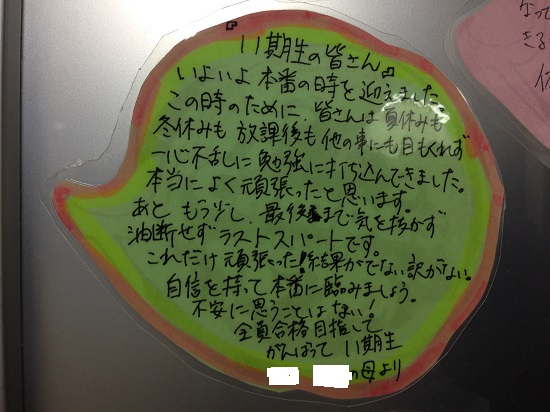 11期生の皆さん。
いよいよ本番の時を迎えました。
この時のために、皆さんは夏休みも
冬休みも 放課後も他の事にも目もくれず
一心不乱に勉強に打ち込んできました。
本当によく頑張ったと思います。
あと もう少し、最後まで気を抜かず
油断せず ラストスパートです。
これだけ頑張った!結果がでない訳がない。
自信を持って本番に臨みましょう。
不安に思うことはない!
全員合格目指して
がんばって 11期生
の母より
なって
きる